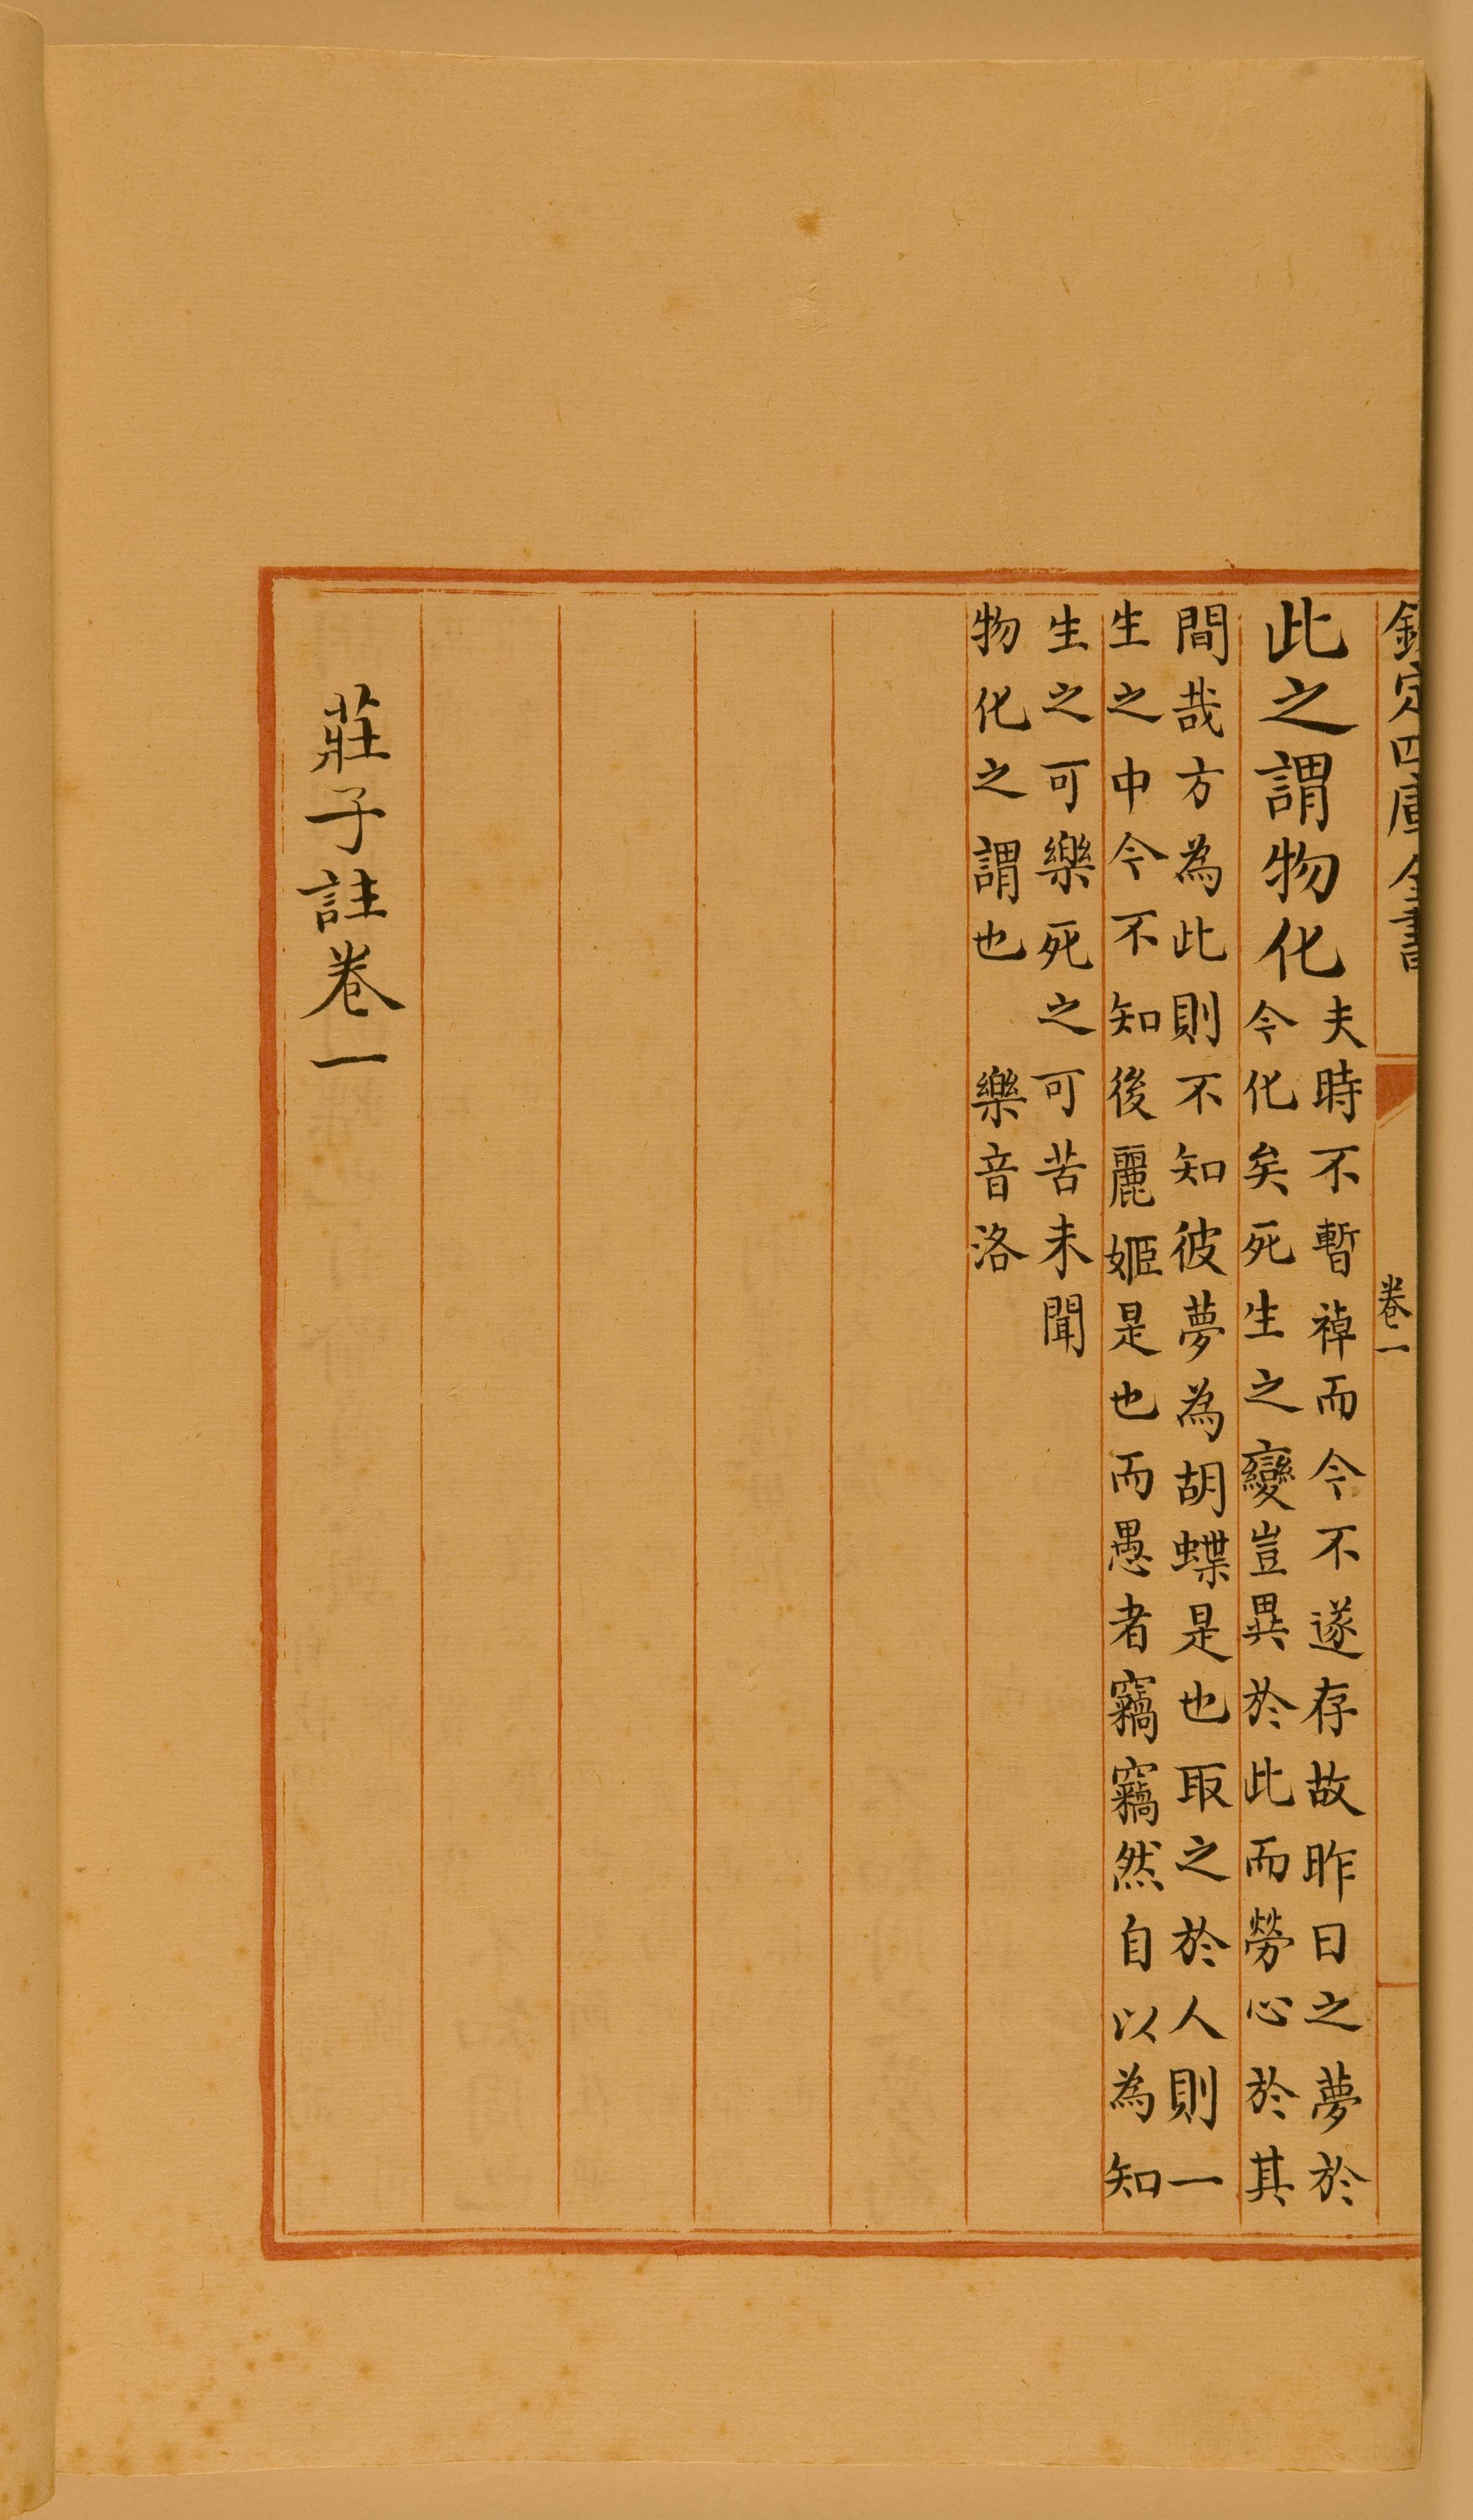 欽定四庫全書
卷一
此之謂物化
夫時不暫而今不遂存故昨日之夢於
今化矣死生之變豈異於此而勞心於其
間哉方為此則不知彼夢為胡蝶是也取之於人則一
生之中今不知後麗姬是也而愚者竊竊然自以為知
生之可樂死之可苦未聞
物化之謂也　樂音洛
莊子註卷一